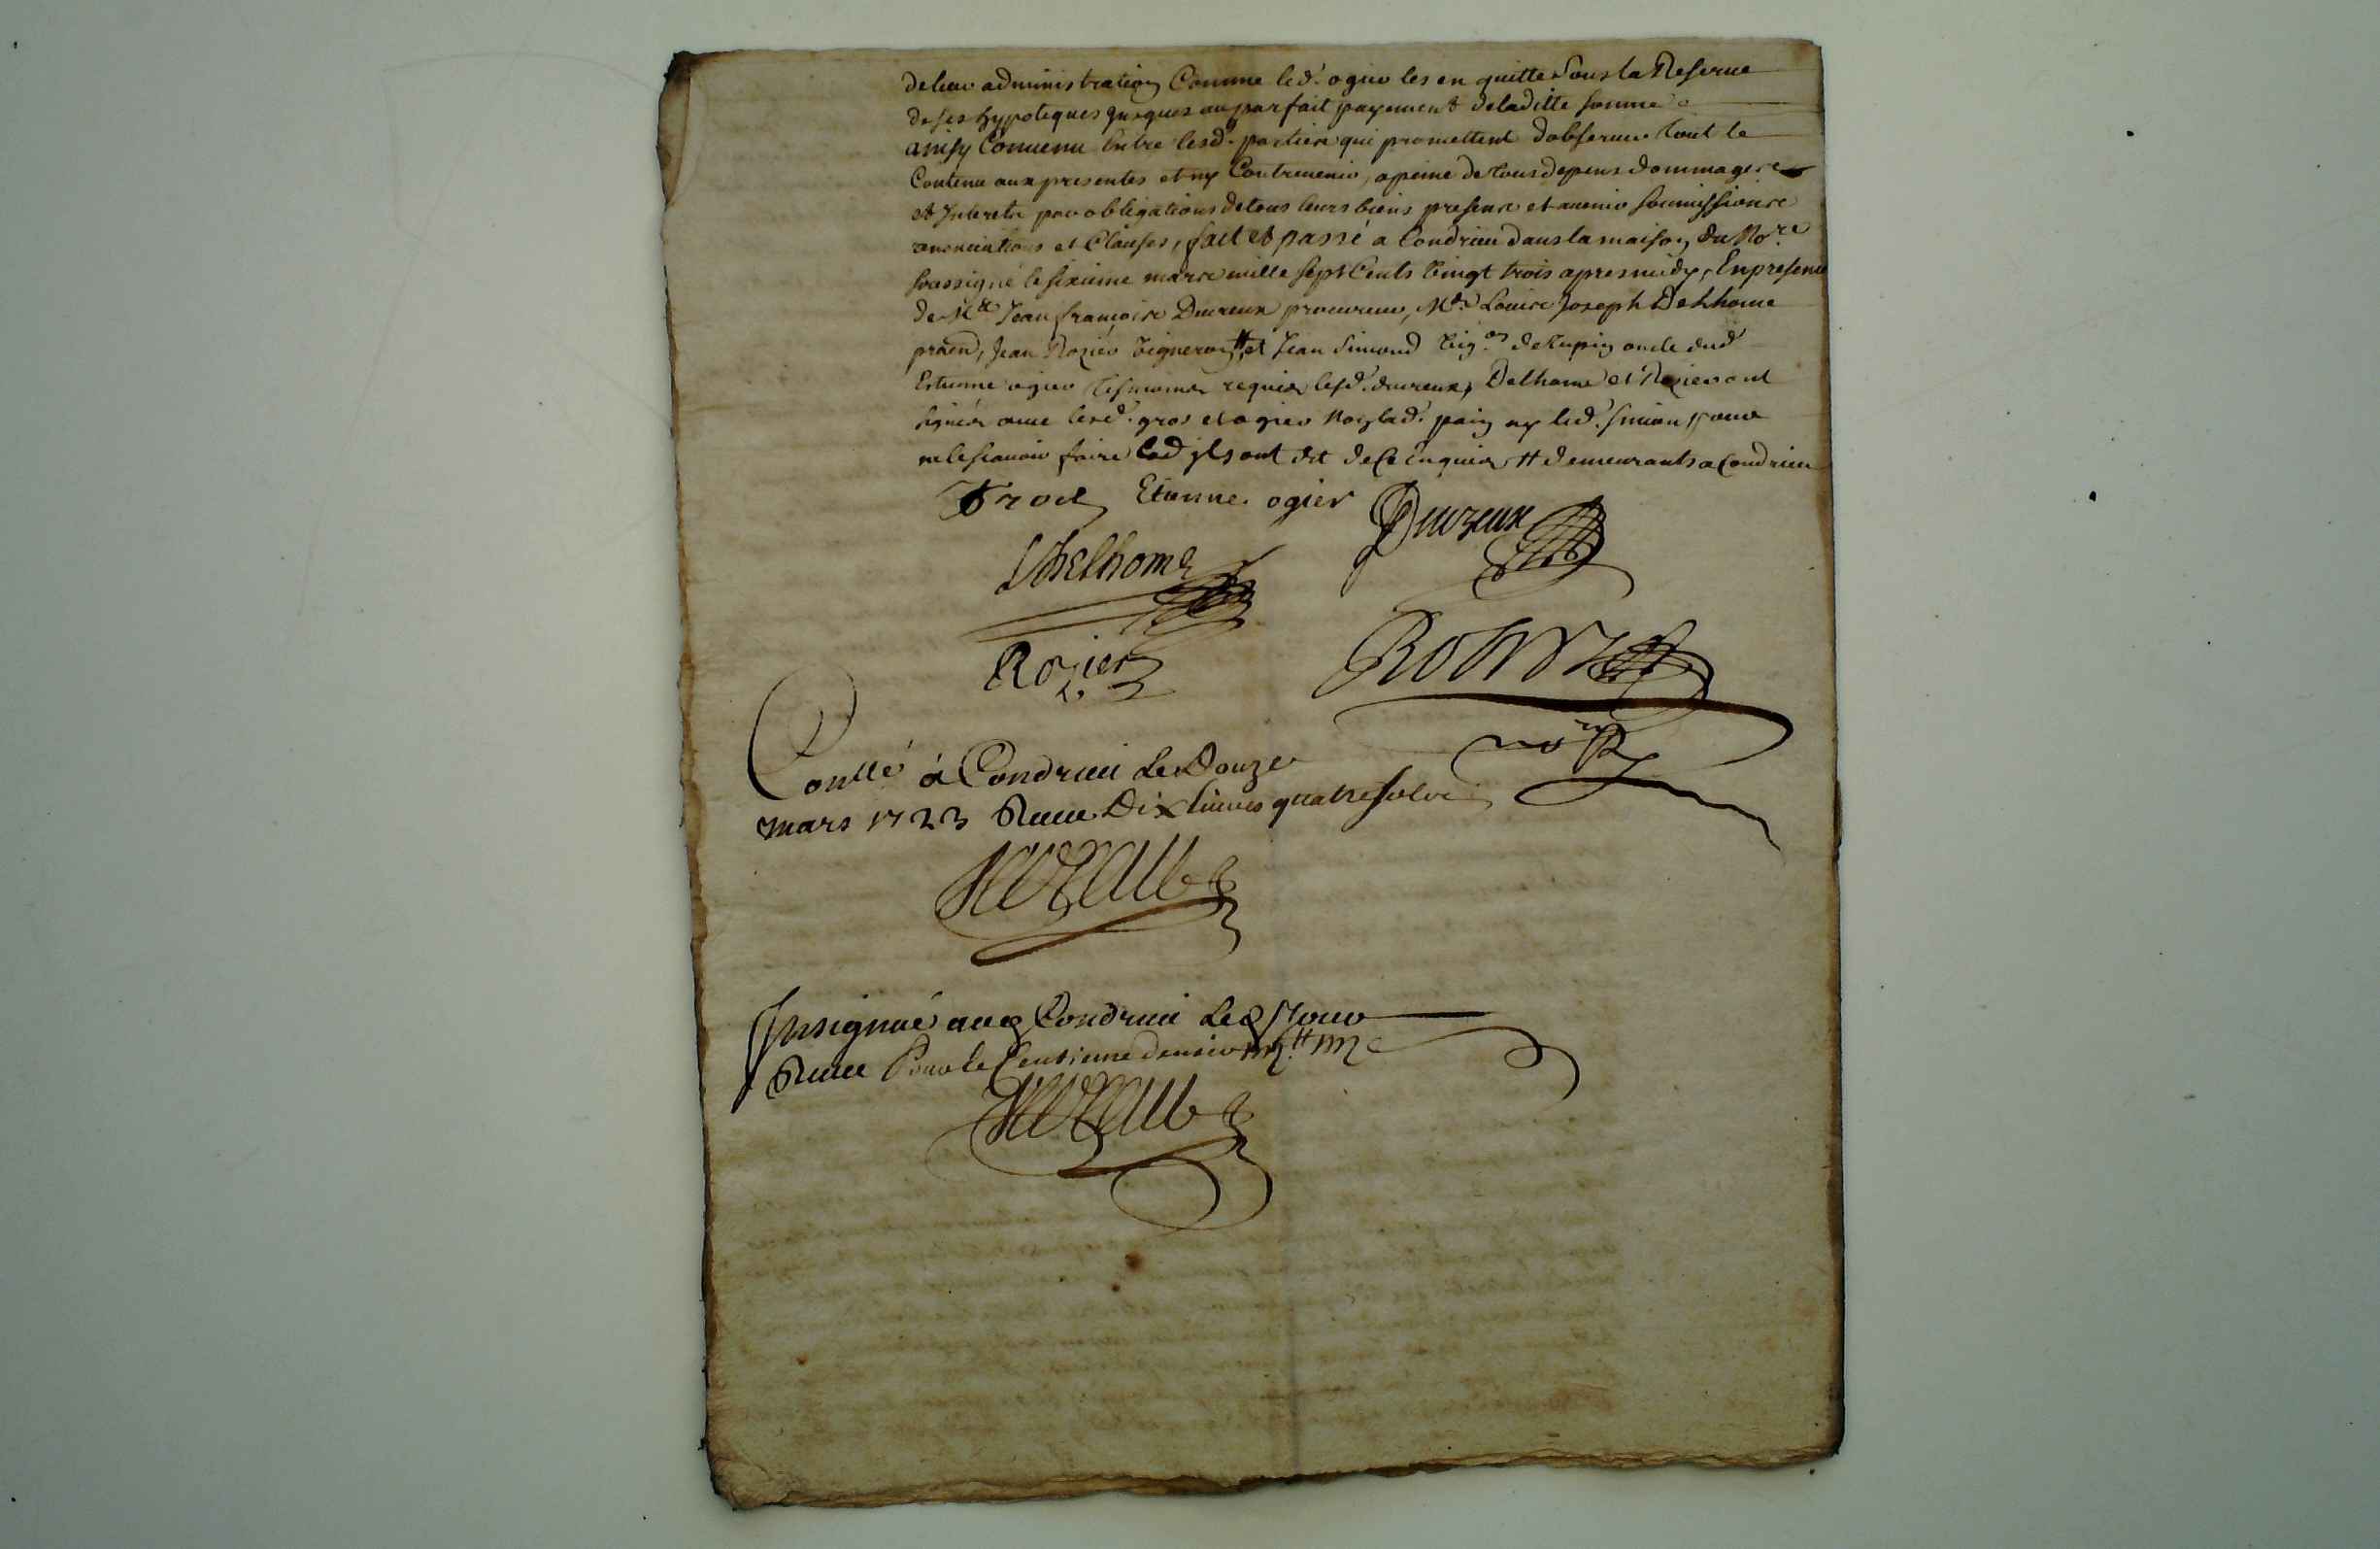 de leur administration Comme led. ogier les en quitte Sous la Reserve
de ses hypoteques jusques au parfait payement de laditte somme
ainsy Convenu Entre lesd. parties qui promettent dobserver tout le
Contenu aux presentes et ny Contrevenir, apeine de tous depens dommages
et Interets par obligations de tous leurs biens presens et avenir soumissions
renonciations et Clauses, fait et passé a Condrieu dans la maison du No.re
soussigné le sixieme mars mille sept Cents vingt trois apres midy, En presence
de Me Jean françois Duvreux procureur, Me Louis Joseph Delhome
praen, Jean Rozier vigneron # et Jean Simond vig.on de Lupin oncle dud.
Estienne ogier tesmoins requis lesd. duvreux, Delhome et Rozier ont
signés avec lesd. gros et ogier non lad. pain ny led. simon pour
ne le scavoir faire ils ont dit de ce enquis # demeurants a Condrieu
Etienne ogier
Duvreux
Delhome
Rozier
no.re
Conllé à Condrieu le Douze
mars 1723 Receu Dix livres quatre sols
Insignué aud Condrieu led Jour
Receu Pour le Centieme denier